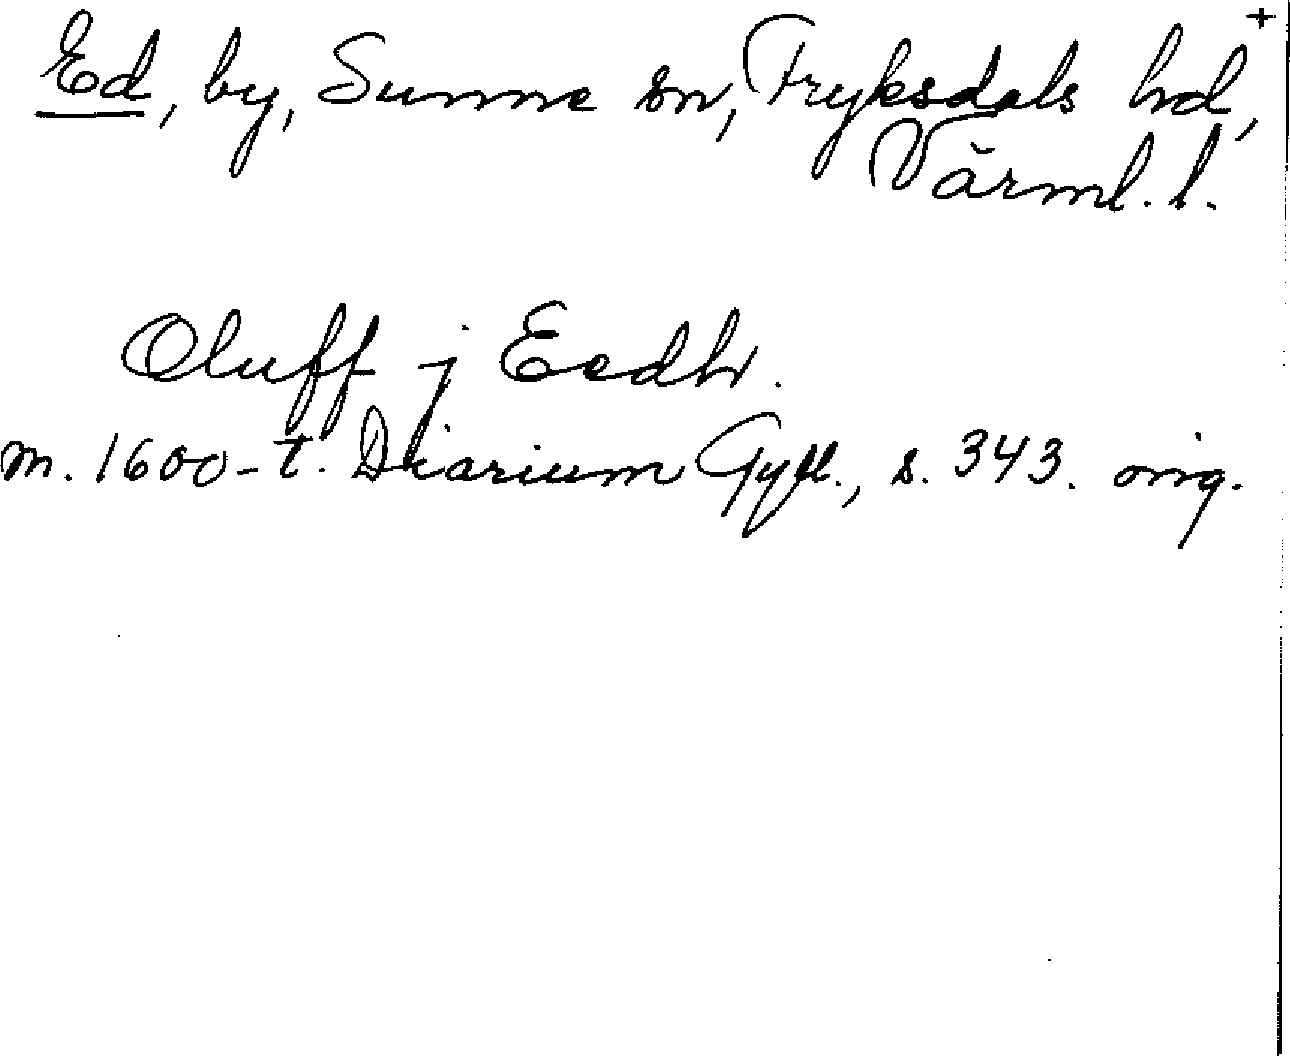 Ed, by, Sunne sn, Fryksdals hd, +
Värml. l.
Oluff j Eedh.
m. 1600-t. Diarium Gyll., s. 343. orig.